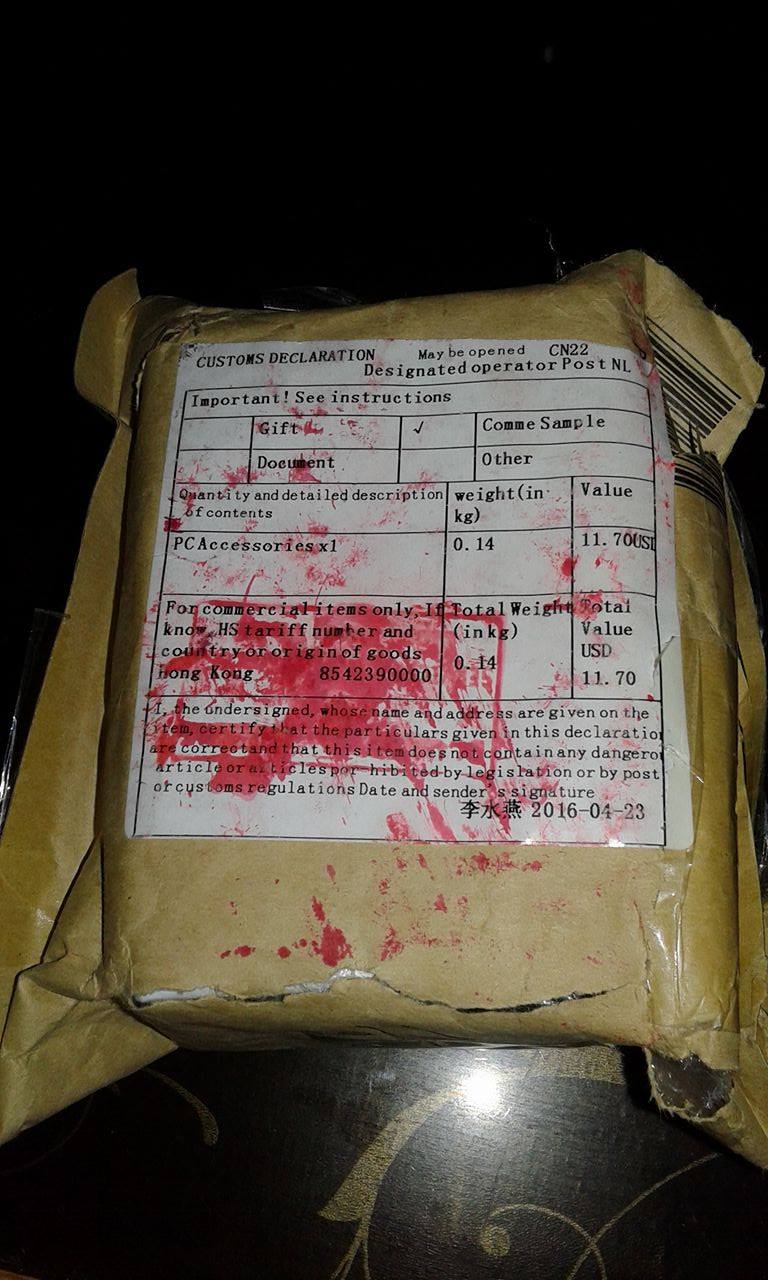 CUSTOMS DECLARATION May be opened CN22
Designated operator Post NL
Important! See instructions
Gift ✓ Comme Sample
Document Other
Quantity and detailed description of contents
weight(in kg)
Value
PC Accessories x1 0.14 11.70USD
For commercial items only, If
know, HS tariff number and
country or origin of goods
Hong Kong 8542390000
Total Weight
(in kg)
0.14
Total
Value
USD
11.70
I, the undersigned, whose name and address are given on the
item, certify that the particulars given in this declaratio
are correotand that this item does not contain any dangero
article or articles por-hibited by legislation or by post
or customs regulations Date and sender's signature
李水燕 2016-04-23